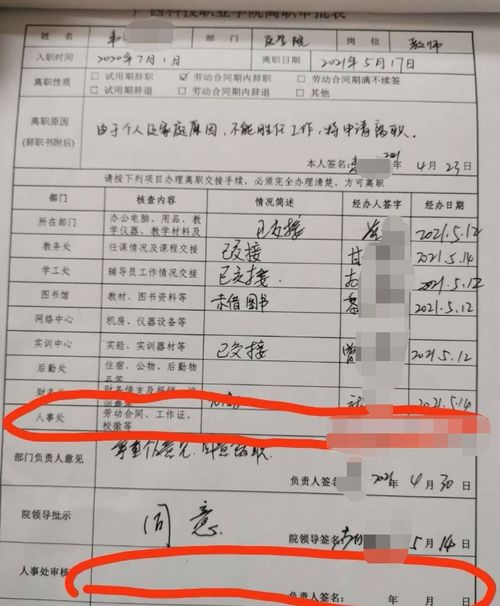 广西科技职业学院离职审批表
姓名 部门 医学院 岗位 教师
入职时间 2020年7月1日 离职日期 2021年5月17日
离职性质 □试用期辞职 ☑劳动合同期内辞职 □劳动合同期满不续签
□试用期辞退 □劳动合同期内辞退 □其他
离职原因
(辞职书附后)
由于个人及家庭原因,不能胜任工作,特申请离职.
本人签名: 2021 4月23日
请按下列项目办理离职交接手续,必须完全办理清楚,方可离职
部门 核查内容 情况简述 经办人签字 经办日期
所在部门 办公电脑、用品、教学仪器、教学材料及 已交接 2021.5.12
教务处 任课情况及课程交接 已交接 甘 2021.5.14
学工处 辅导员工作情况交接 已交接. 2021.5.12
图书馆 教材、图书资料等 未借图书 2021.5.12
网络中心 机房、仪器设备等
实训中心 实验、实训器材等 已交接 曾 2021.5.12
后勤处 住宿、公物、后勤物品等
财务处 2021.5.14
人事处 劳动合同、工作证、校徽等
部门负责人意见 尊重个人意见,同意离职.
负责人签名 2021年4月30日
院领导批示 同意
院领导签名: 5月14日
人事处审核
负责人签名: 年 月 日